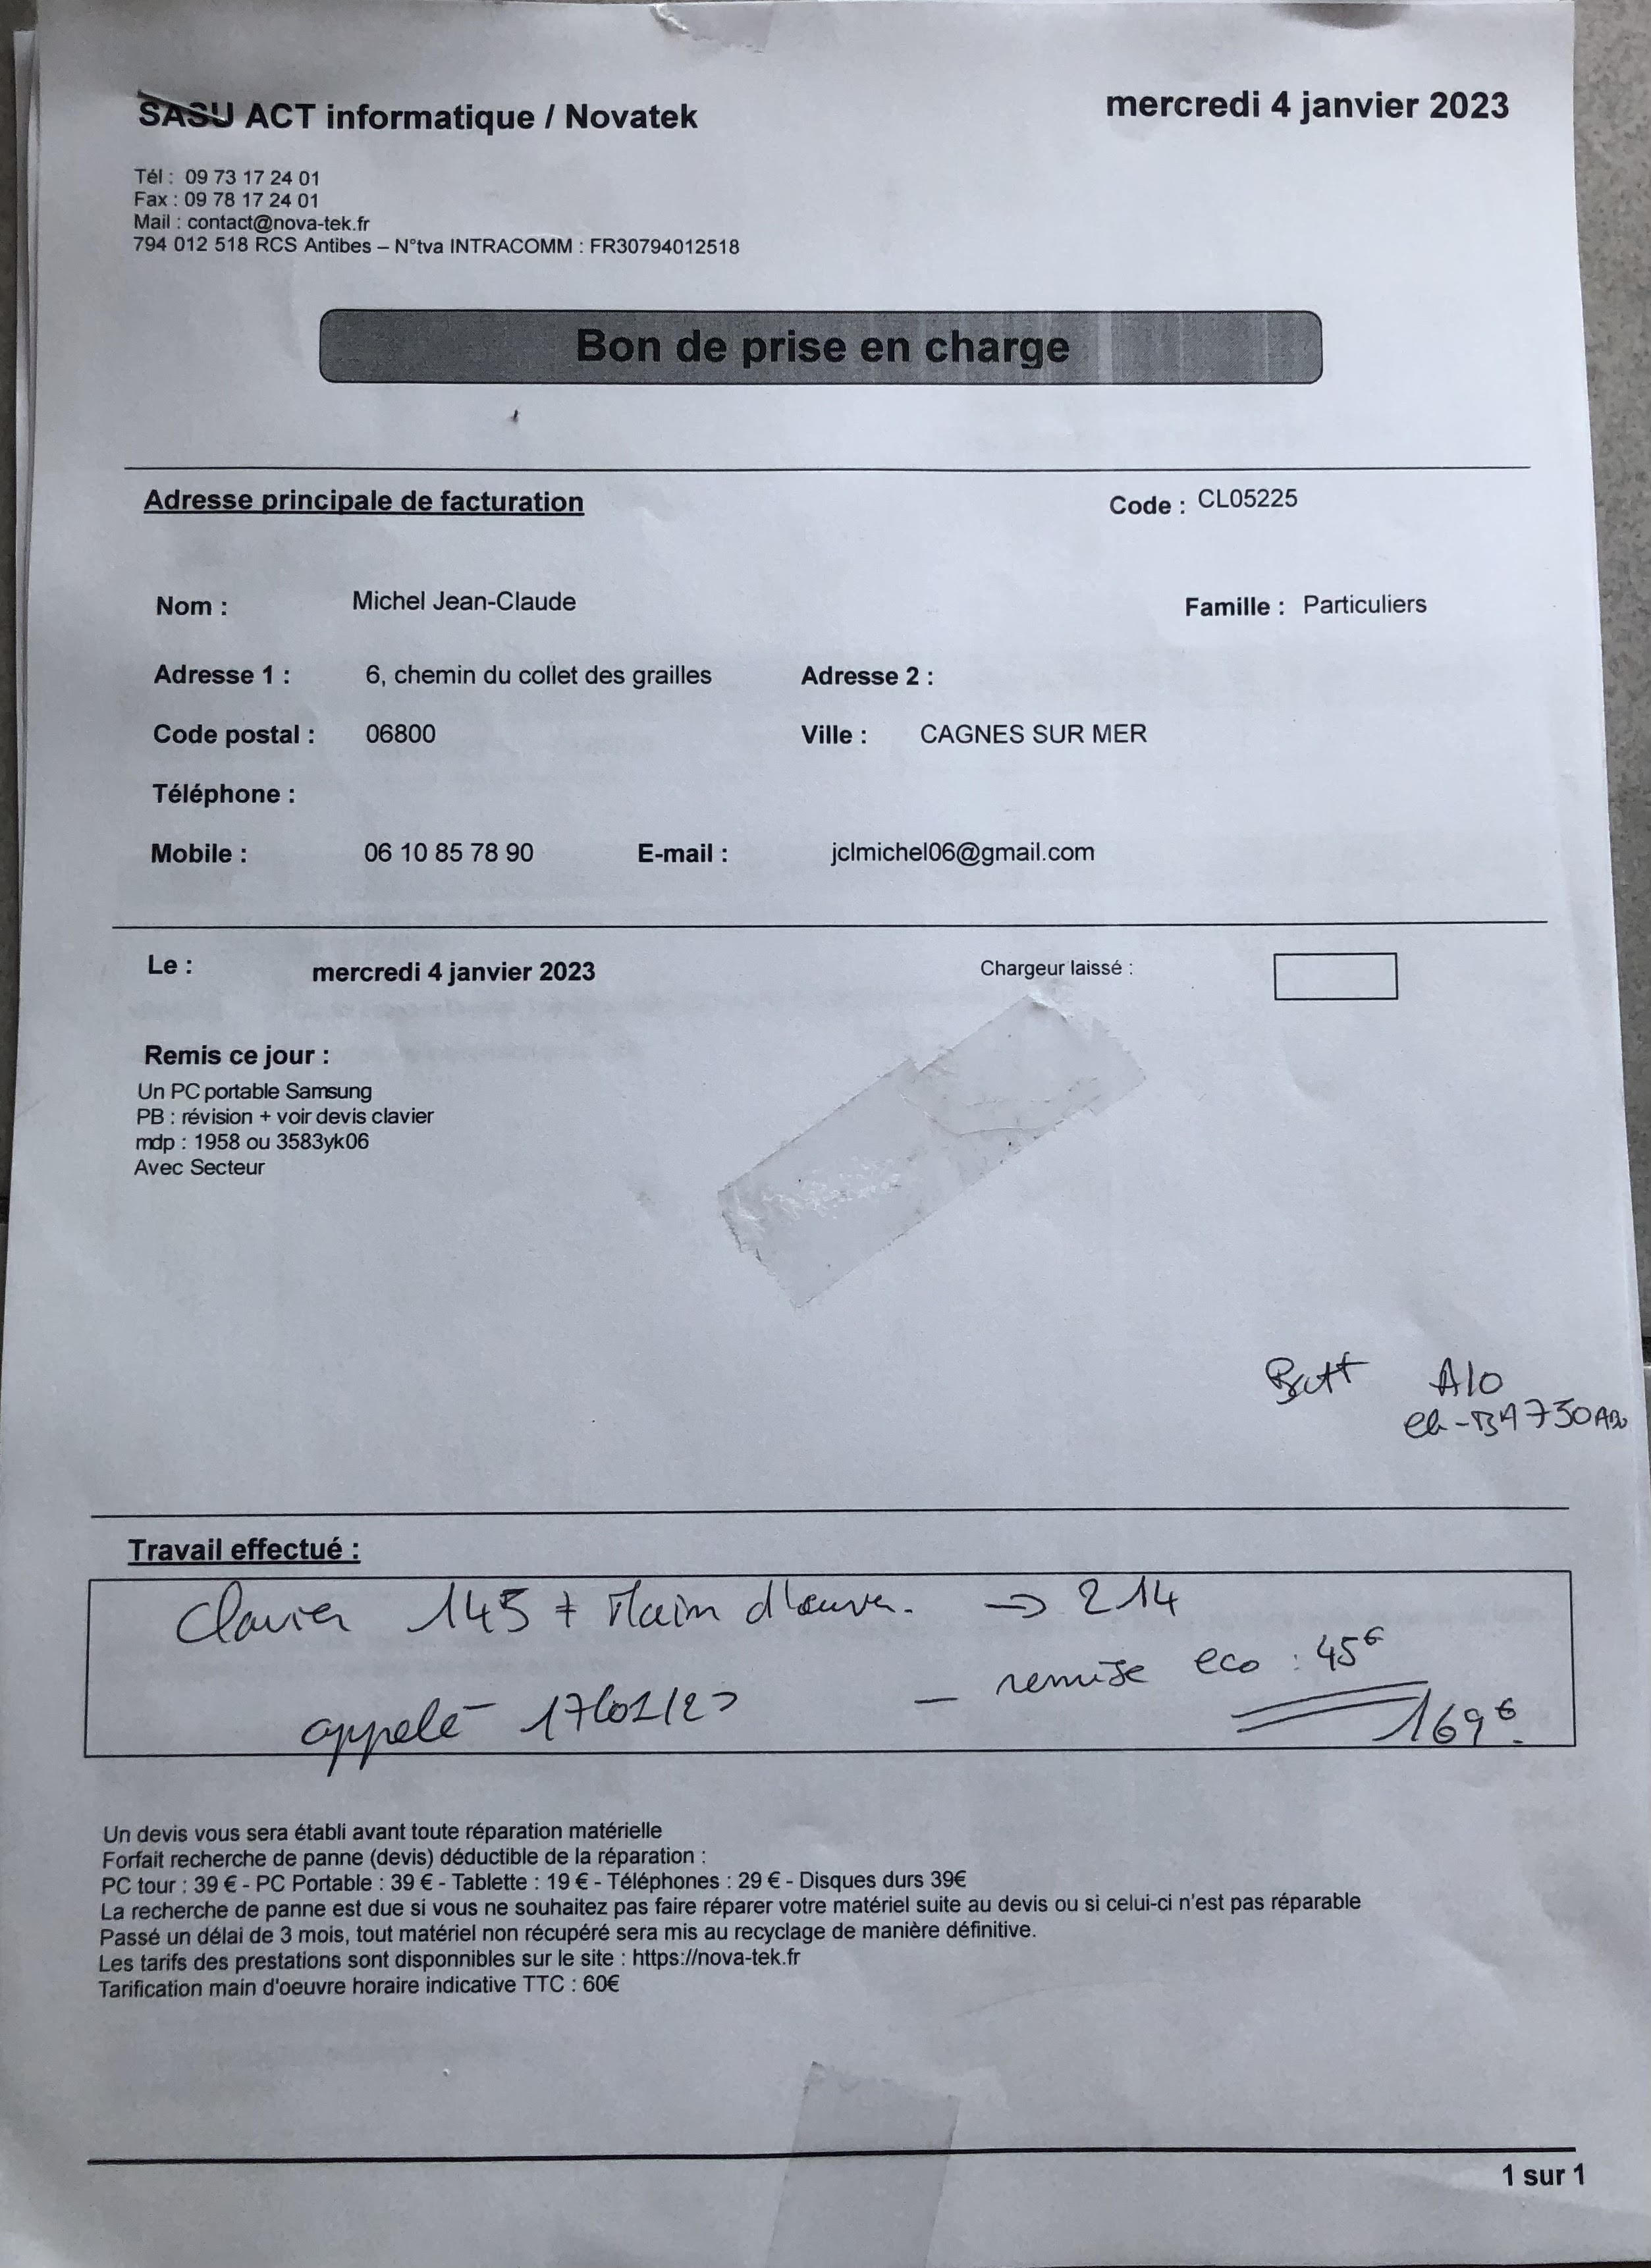 SASU ACT informatique / Novatek
mercredi 4 janvier 2023
Tél : 09 73 17 24 01
Fax : 09 78 17 24 01
Mail : contact@nova-tek.fr
794 012 518 RCS Antibes – N°tva INTRACOMM : FR30794012518
Bon de prise en charge
Adresse principale de facturation
Code : CL05225
Nom : Michel Jean-Claude
Famille : Particuliers
Adresse 1 : 6, chemin du collet des grailles
Adresse 2 :
Code postal : 06800
Ville : CAGNES SUR MER
Téléphone :
Mobile : 06 10 85 78 90
E-mail : jclmichel06@gmail.com
Le : mercredi 4 janvier 2023
Chargeur laissé :
Remis ce jour :
Un PC portable Samsung
PB : révision + voir devis clavier
mdp : 1958 ou 3583yk06
Avec Secteur
Batt A10
Travail effectué :
Clavier 145 + Main d'œuvre. → 214
— remise eco : 45€
appelé 17/01/23
169€.
Un devis vous sera établi avant toute réparation matérielle
Forfait recherche de panne (devis) déductible de la réparation :
PC tour : 39 € - PC Portable : 39 € - Tablette : 19 € - Téléphones : 29 € - Disques durs 39€
La recherche de panne est due si vous ne souhaitez pas faire réparer votre matériel suite au devis ou si celui-ci n'est pas réparable
Passé un délai de 3 mois, tout matériel non récupéré sera mis au recyclage de manière définitive.
Les tarifs des prestations sont disponnibles sur le site : https://nova-tek.fr
Tarification main d'oeuvre horaire indicative TTC : 60€
1 sur 1